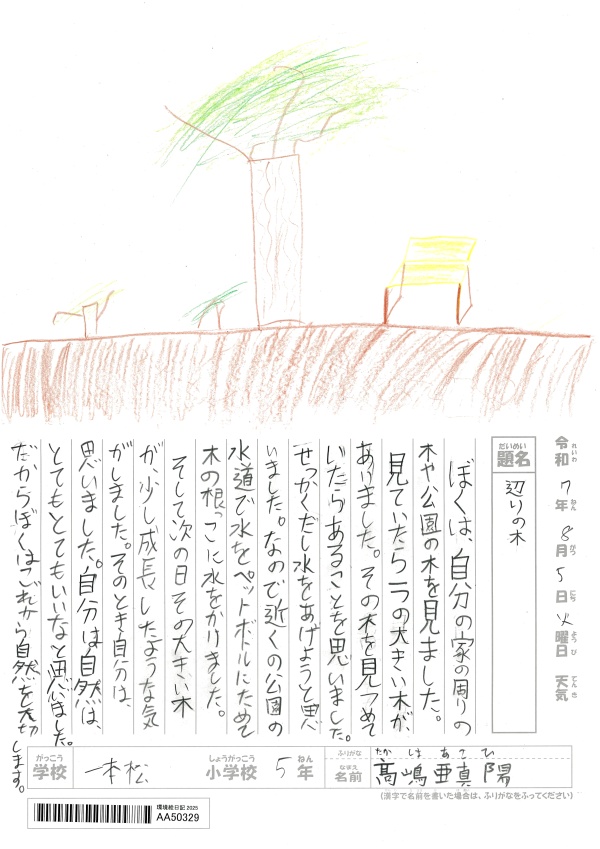 令和 7年 8月 5日 火曜日 天気
れいわ ねん がつ にち ようび てんき
だいめい
題名
辺りの木
ぼくは、自分の家の周りの
木や公園の木を見ました。
見ていたら一つの大きい木が、
ありました。その木を見つめて
いたらあることを思いました。
せっかくだし水をあげようと思
いました。なので近くの公園の
水道で水をペットボトルにためて
木の根っこに水をかけました。
そして次の日その大きい木
が、少し成長したような気
がしました。そのとき自分は、
思いました。自分は自然は、
とてもとてもいいなと思いました。
だからぼくはこれから自然を大切
します。
がっこう
学校
一本松
しょうがっこう
小学校
5
ねん
年
ふりがな
たかしま あさひ
なまえ
名前
髙嶋 亜真陽
(漢字で名前を書いた場合は、ふりがなをふってください)
環境絵日記 2025
AA50329